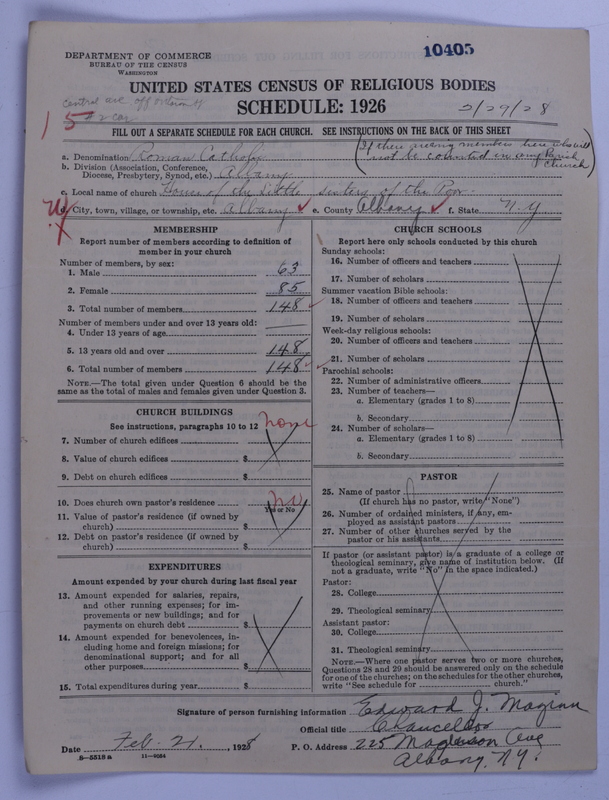 10405
DEPARTMENT OF COMMERCE
BUREAU OF THE CENSUS
WASHINGTON
UNITED STATES CENSUS OF RELIGIOUS BODIES
SCHEDULE: 1926
2/29/28
Central ave off
15
FILL OUT A SEPARATE SCHEDULE FOR EACH CHURCH. SEE INSTRUCTIONS ON THE BACK OF THIS SHEET
a. Denomination Roman Catholic
(If there are any members here who will not be counted in any Parish Church)
b. Division (Association, Conference, Diocese, Presbytery, Synod, etc.) Albany
c. Local name of church House of the Little sisters of the Poor
d. City, town, village, or township, etc. Albany e. County Albany f. State N.Y
MEMBERSHIP
Report number of members according to definition of
member in your church
Number of members, by sex:
1. Male 63
2. Female 85
3. Total number of members 148
Number of members under and over 13 years old:
4. Under 13 years of age
5. 13 years old and over 148
6. Total number of members 148
NOTE.—The total given under Question 6 should be
same as the total of males and females given under Question 3.
CHURCH BUILDINGS
See instructions, paragraphs 10 to 12
none
7. Number of church edifices
8. Value of church edifices $
9. Debt on church edifices $
10. Does church own pastor's residence no
Yes or No
11. Value of pastor's residence (if owned by
church) $
12. Debt on pastor's residence (if owned by
church) $
EXPENDITURES
Amount expended by your church during last fiscal year
13. Amount expended for salaries, repairs,
and other running expenses; for im-
provements or new buildings; and for
payments on church debt $
14. Amount expended for benevolences, in-
cluding home and foreign missions; for
denominational support; and for all
other purposes $
15. Total expenditures during year $
CHURCH SCHOOLS
Report here only schools conducted by this church
Sunday schools:
16. Number of officers and teachers
17. Number of scholars
Summer vacation Bible schools:
18. Number of officers and teachers
19. Number of scholars
Week-day religious schools:
20. Number of officers and teachers
21. Number of scholars
Parochial schools:
22. Number of administrative officers
23. Number of teachers—
a. Elementary (grades 1 to 8)
b. Secondary
24. Number of scholars—
a. Elementary (grades 1 to 8)
b. Secondary
PASTOR
25. Name of pastor
(If church has no pastor, write "None")
26. Number of ordained ministers, if any, em-
ployed as assistant pastors
27. Number of other churches served by the
pastor or his assistants
If pastor (or assistant pastor) is a graduate of a college or
theological seminary, give name of institution below. (If
not a graduate, write "No" in the space indicated.)
Pastor:
28. College
29. Theological seminary
Assistant pastor:
30. College
31. Theological seminary
NOTE.—Where one pastor serves two or more churches,
Questions 28 and 29 should be answered only on the schedule
for one of the churches; on the schedules for the other churches,
write "See schedule for church."
Signature of person furnishing information Edward J. Maginn
Official title Chancellor
Date Feb. 21, 1928 P. O. Address 225 Madison Ave
Albany, N.Y.
8—5518 a 11—9084